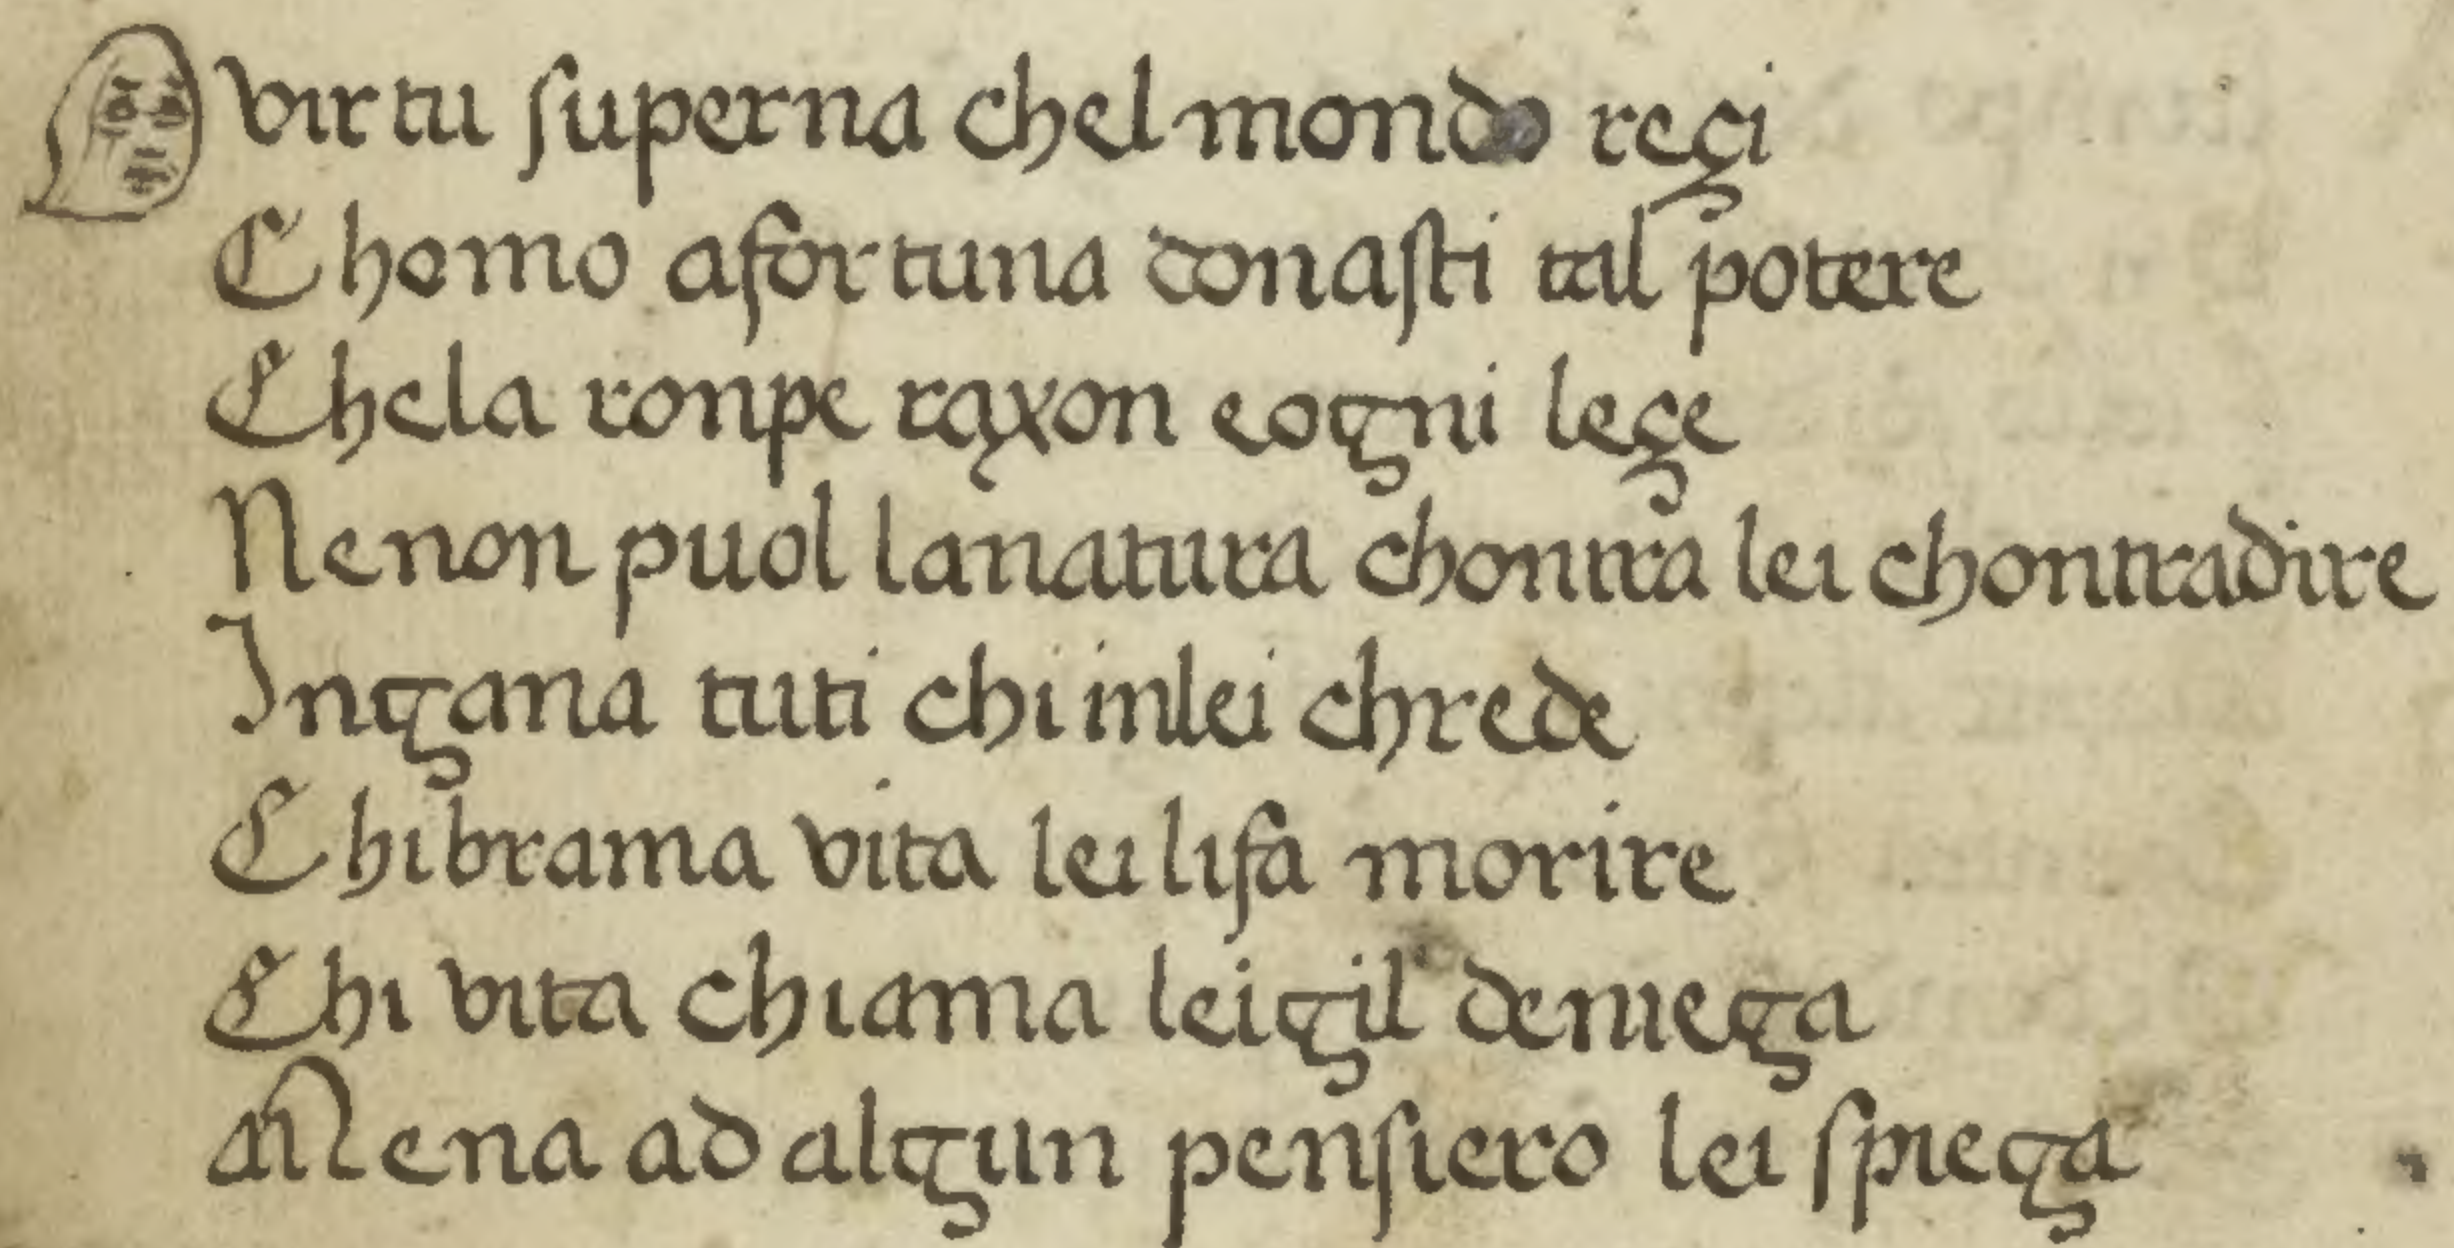 O virtu superna chel mondo regi
Chomo afortuna donasti tal potere
Chela ronpe raxon eogni lege
Nenon puol lanatura chontra lei chontradire
Ingana tuti chi inlei chrede
Chibrama vita lei lifa morire
Chi vita chiama lei gil deniega
Mena ad algun pensiero lei spiega